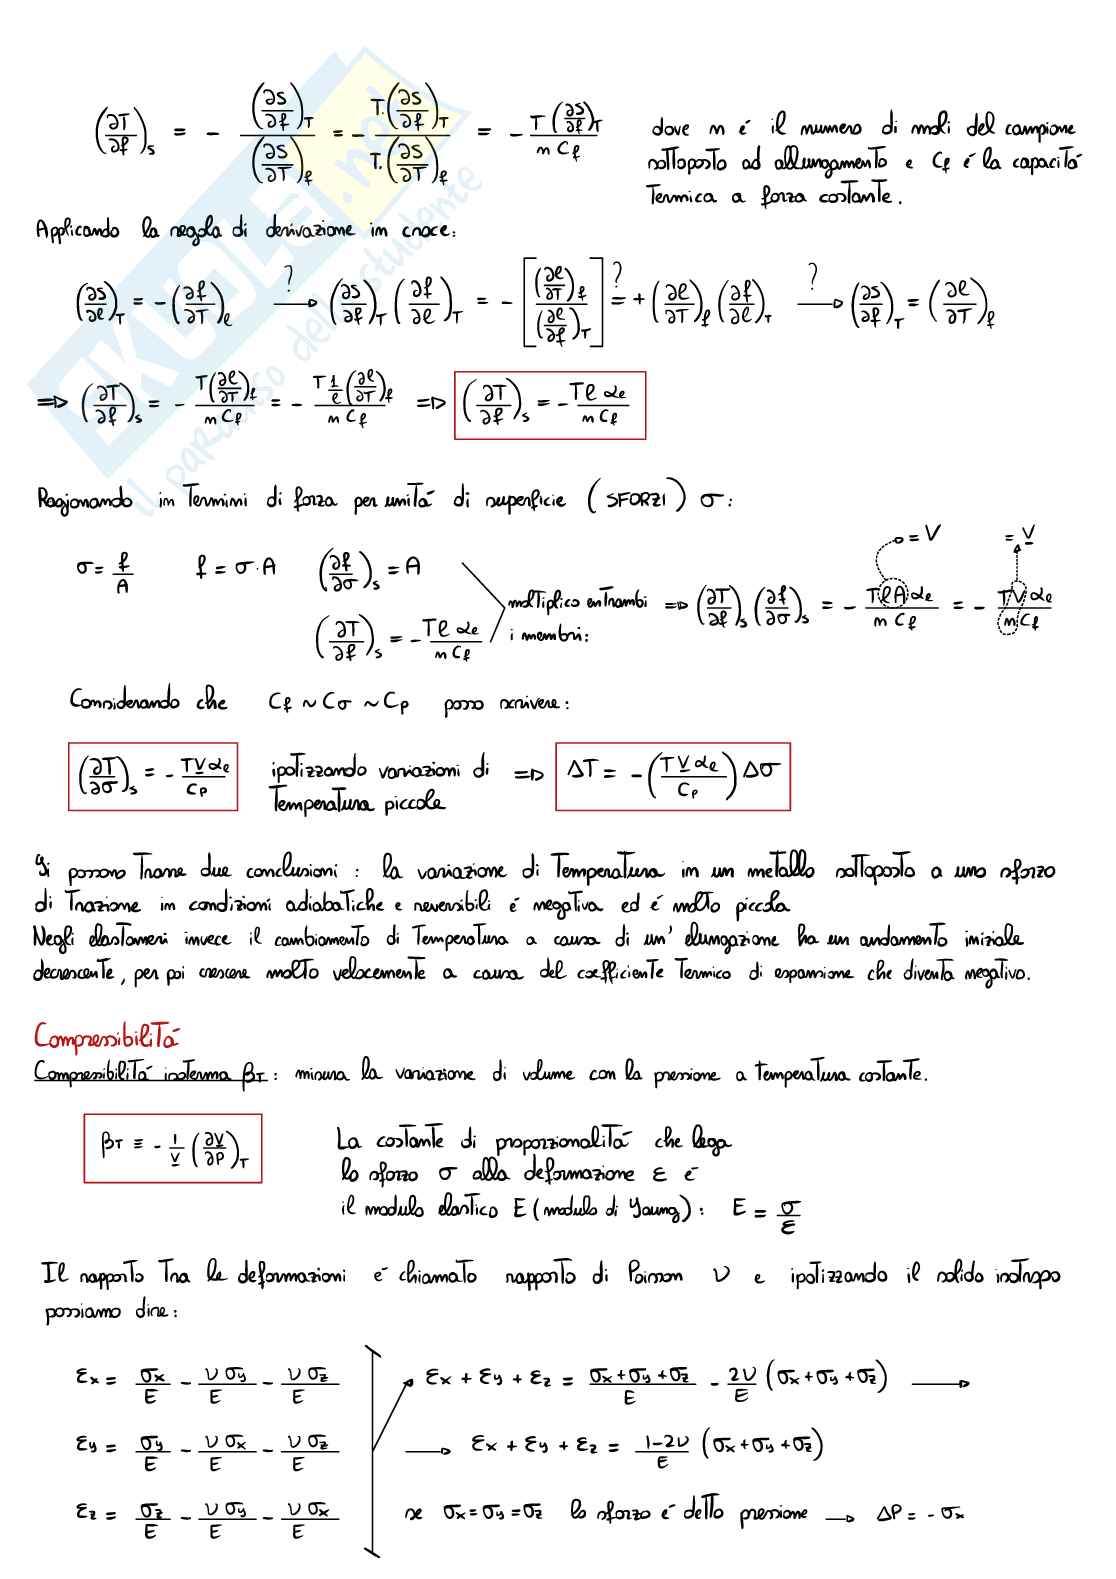 (∂T/∂f)_s = - (∂S/∂f)_T / (∂S/∂T)_f = - T·(∂S/∂f)_T / T·(∂S/∂T)_f = - T (∂S/∂f)_T / n C_f
dove n é il numero di moli del campione
sottoposto ad allungamento e Cf é la capacitá
termica a forza costante.
Applicando la regola di derivazione in croce:
(∂S/∂l)_T = - (∂f/∂T)_l ?⟶ (∂S/∂f)_T (∂f/∂l)_T = - [(∂l/∂T)_f / (∂l/∂f)_T] ?= + (∂l/∂T)_f (∂f/∂l)_T ?⟶ (∂S/∂f)_T = (∂l/∂T)_f
⇒ (∂T/∂f)_s = - T(∂l/∂T)_f / n C_f = - T 1/l (∂l/∂T)_f / n C_f ⇒ (∂T/∂f)_s = - T l α_e / n C_f
Ragionando in termini di forza per unitá di superficie (SFORZI) σ:
σ = f/A f = σ·A (∂f/∂σ)_s = A
(∂T/∂f)_s = - T l α_e / n C_f
moltiplico entrambi
i membri:
⇒ (∂T/∂f)_s (∂f/∂σ)_s = - T l A α_e / n C_f = - T V α_e / n C_f
= V
= V̲
Considerando che C_f ~ C_σ ~ C_p posso scrivere:
(∂T/∂σ)_s = - T V̲ α_e / C_p
ipotizzando variazioni di
temperatura piccole
⇒ ΔT = - (T V̲ α_e / C_p) Δσ
Si possono trarre due conclusioni : la variazione di temperatura in un metallo sottoposto a uno sforzo
di trazione in condizioni adiabatiche e reversibili é negativa ed é molto piccola
Negli elastomeri invece il cambiamento di temperatura a causa di un' elungazione ha un andamento iniziale
decrescente, per poi crescere molto velocemente a causa del coefficiente termico di espansione che diventa negativo.
Compressibilitá
Compressibilitá isoterma β_T: misura la variazione di volume con la pressione a temperatura costante.
β_T ≡ - 1/V̲ (∂V̲/∂P)_T
La costante di proporzionalitá che lega
lo sforzo σ alla deformazione ε é
il modulo elastico E (modulo di Young): E = σ/ε
Il rapporto tra le deformazioni é chiamato rapporto di Poisson ν e ipotizzando il solido isotropo
possiamo dire:
ε_x = σ_x/E - ν σ_y/E - ν σ_z/E
ε_x + ε_y + ε_z = (σ_x + σ_y + σ_z)/E - 2ν/E (σ_x + σ_y + σ_z) ⟶
ε_y = σ_y/E - ν σ_x/E - ν σ_z/E
⟶ ε_x + ε_y + ε_z = (1-2ν)/E (σ_x + σ_y + σ_z)
ε_z = σ_z/E - ν σ_y/E - ν σ_x/E
se σ_x = σ_y = σ_z lo sforzo é detto pressione → ΔP = - σ_x
SKUOLA.net
il paradiso dello studente